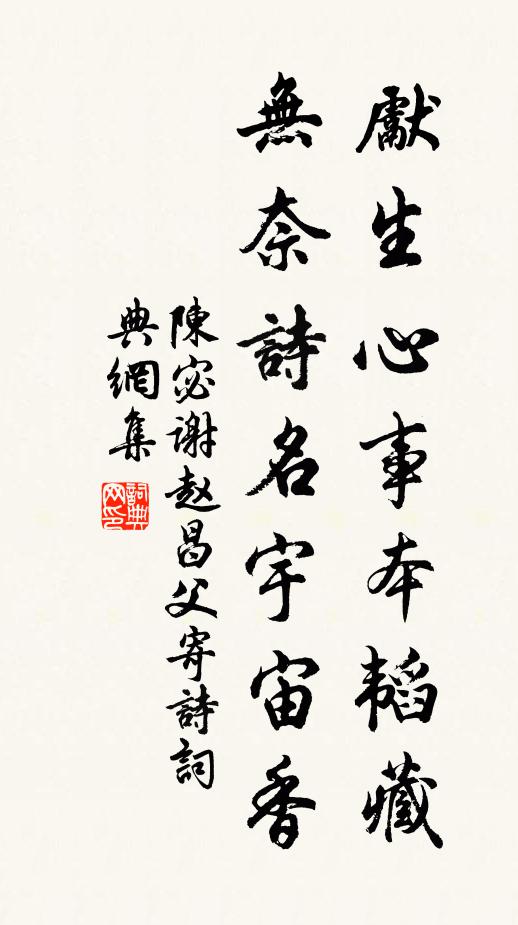 獻生心事本韜藏
無奈詩名宇宙香
陳宓谢赵昌父寄詩詞
典網集
詞典
网印